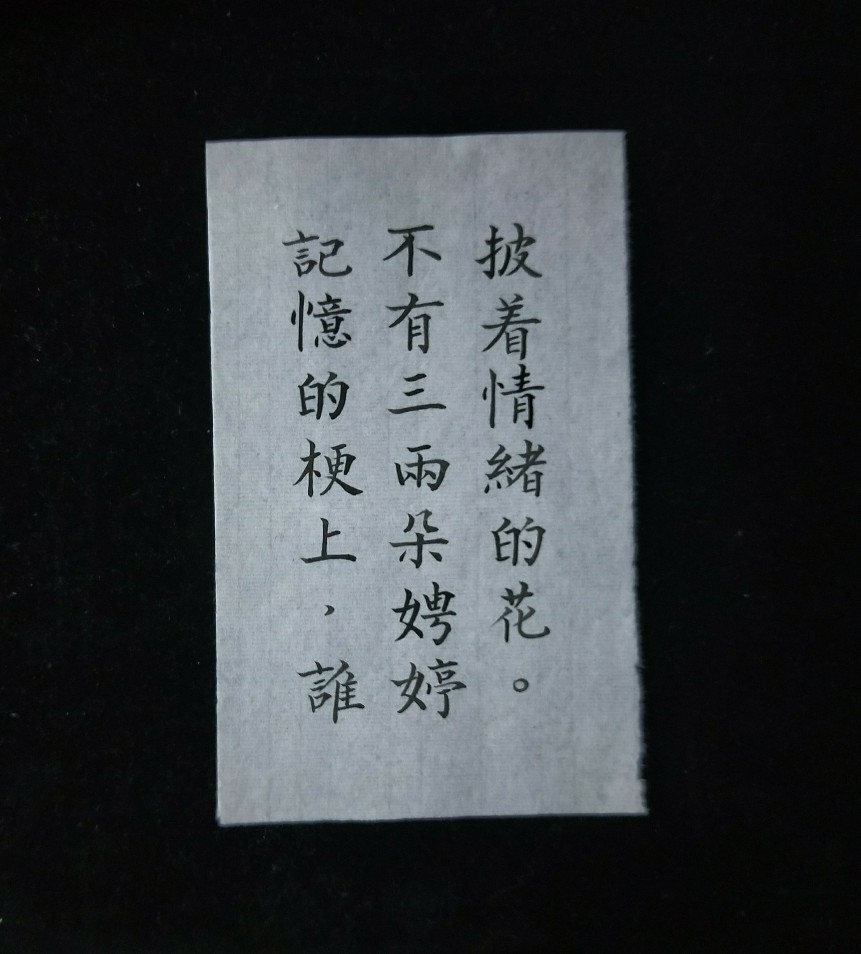 記憶的梗上，誰
不有三兩朵娉婷
披着情緒的花。